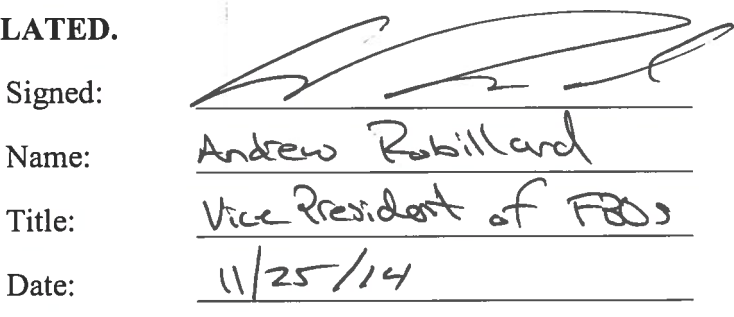 LATED.
Signed:
Name: Andrew Robillard
Title: Vice President of FBOs
Date: 11/25/14